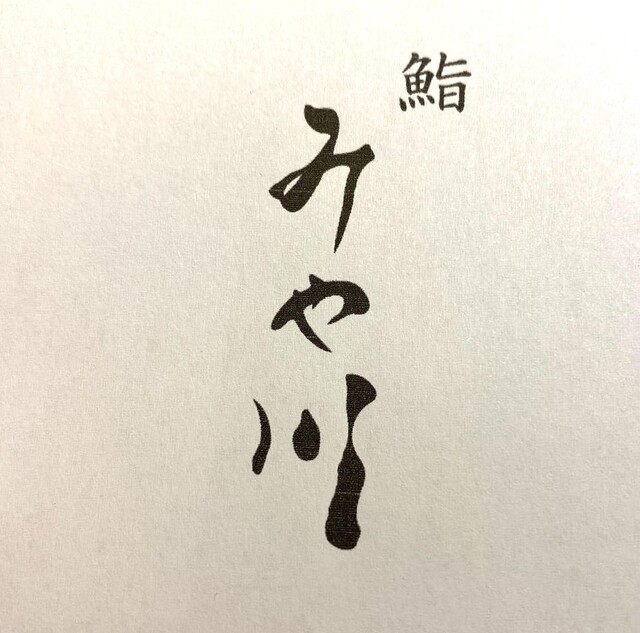 鮨
みや川